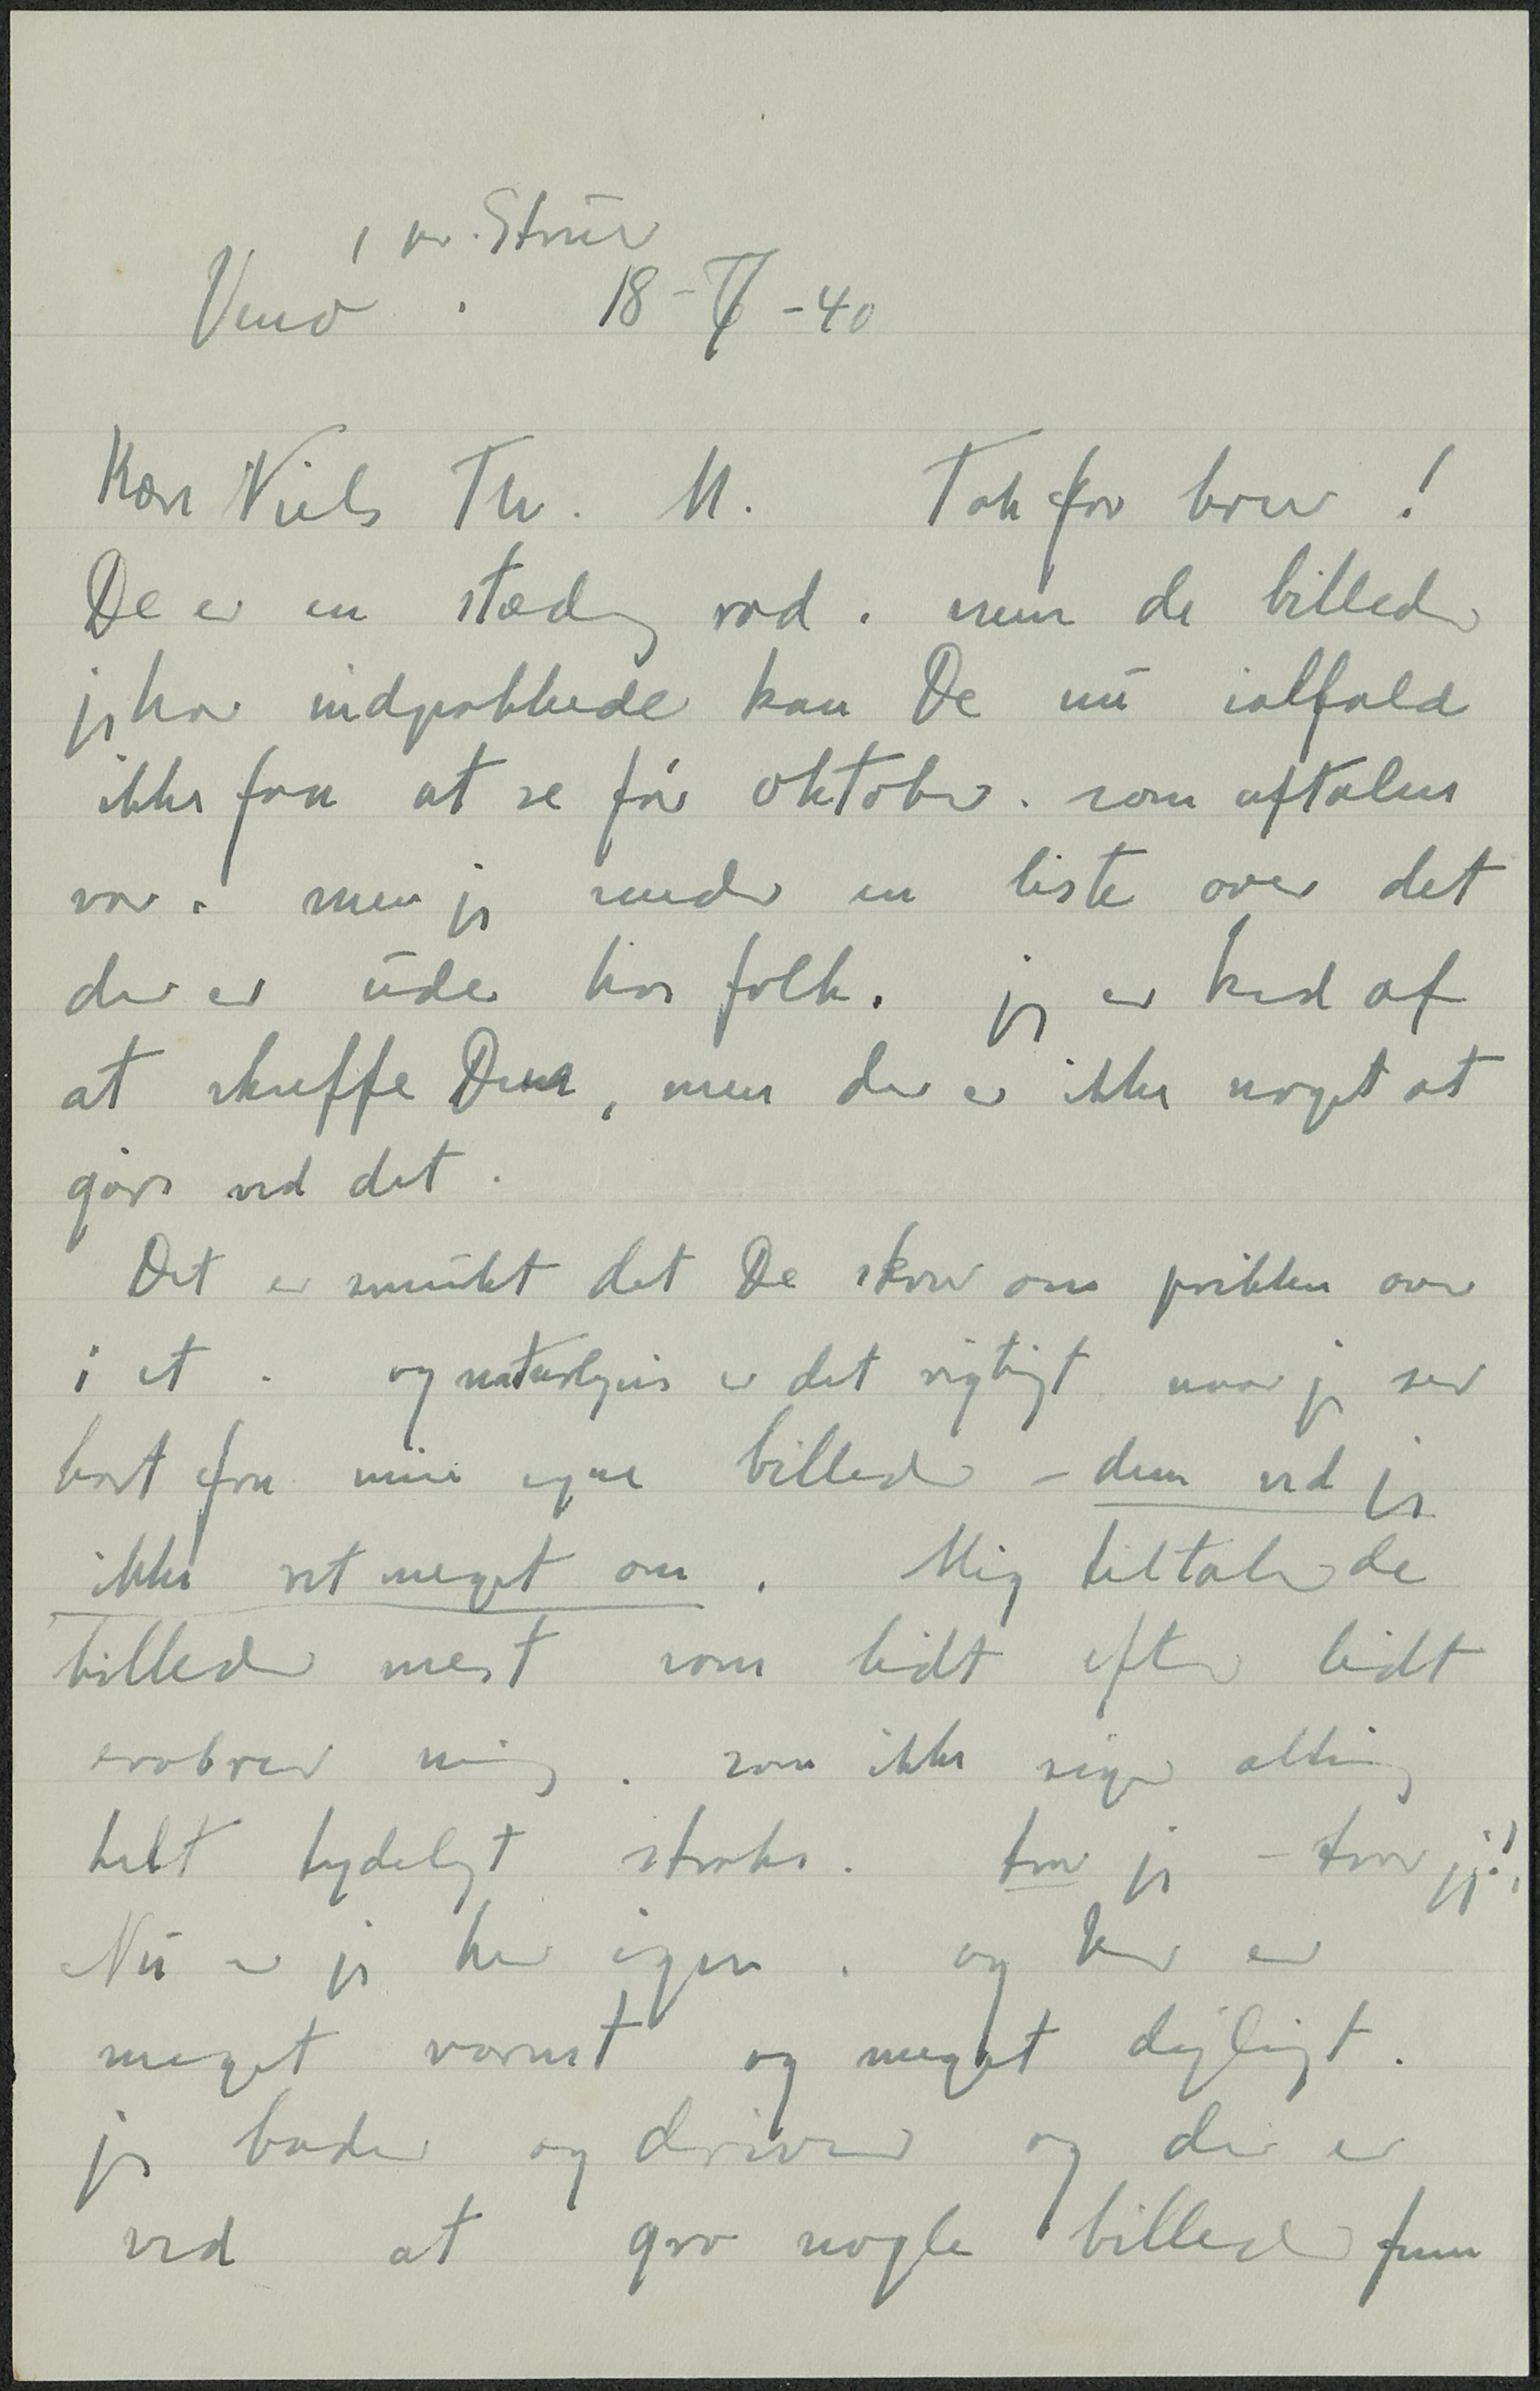 , pr. Struer
Venø . 18-6-40
Kære Niels Th. M. Tak for brev !
De er en stædig rad . men de billeder
jeg har indpakkede kan De nu ialfald
ikke faa at se før oktober . som aftalen
var . men jeg sender en liste over det
der er ude hos folk . jeg er ked af
at skuffe Dem , men der er ikke noget at
gøre ved det .
Det er smukt det De skrev om prikken over
i et . og naturligvis er det rigtigt naar jeg ser
bort fra mine egne billeder – dem ved jeg
ikke ret meget om . Mig tiltaler de
billeder mest som lidt efter lidt
erobrer mig . som ikke siger alting
helt tydeligt straks . tror jeg – tror jeg !
Nu er jeg her igen . og her er
meget varmt og meget dejligt .
jeg bader og driver og der er
ved at gro nogle billeder frem